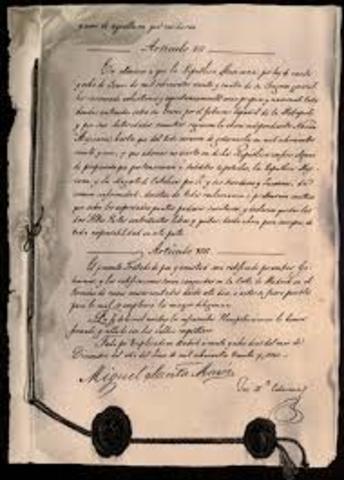 Artículo VII
En atencion a que la República Mexicana, por ley de veinte
y ocho de Junio de mil ochocientos veinte y cuatro de su Congreso general,
ha reconocido voluntaria y espontaneamente como propia y nacional toda
deuda contraida sobre su Erario por el Gobierno español de la Metropoli
y por sus autoridades mientras rigieron la ahora independiente Nacion
Mexicana, hasta que del todo cesaron de gobernarla en mil ochocientos
veinte y uno; y que ademas no existe en la República
de propiedades que a súbditos españoles, la República Mexi-
cana y Su Magestad Católica por sí y sus herederos y sucesores, de
comun conformidad, desisten de toda reclamacion o pretension mutua
que sobre los espresados puntos pudiera suscitarse, y declaran quedar las
dos Altas Partes contratantes libres y quitas, desde ahora para siempre, de
toda responsabilidad en esta parte.
Artículo VIII
El presente Tratado de paz y amistad será ratificado por ambos Go-
biernos, y las ratificaciones serán cangeadas en la Corte de Madrid en el
término de nueve meses contados desde este dia, o antes si fuere posible
para lo cual se
En fé de lo cual nosotros los infrascritos Plenipotenciarios lo hemos
firmado y sellado con los sellos respectivos.
Fecho por triplicado en Madrid a veinte y ocho dias del mes de
Diciembre del año del Señor de mil ochocientos treinta y seis.
Miguel Santa Maria
José M.ª Calatrava